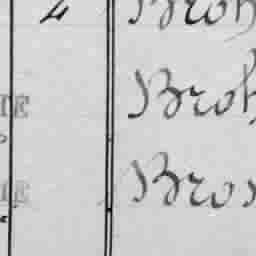 2 Broh
IE Broh
IE Bros